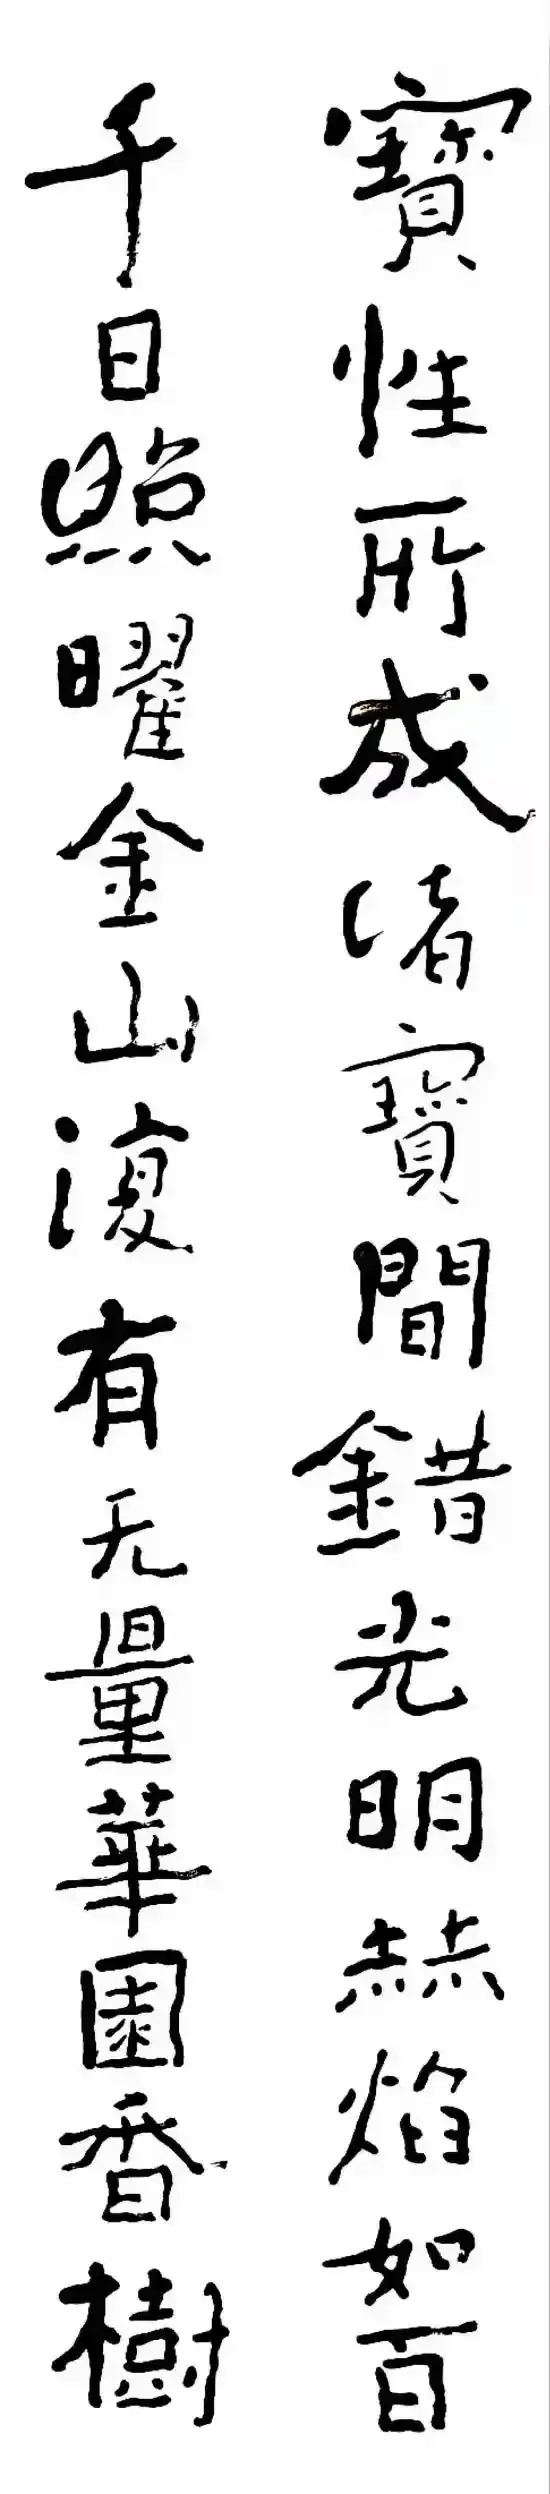 寶性所成诸寶間錯光明赫焰如百
千日照曜金山復有无量華園香樹